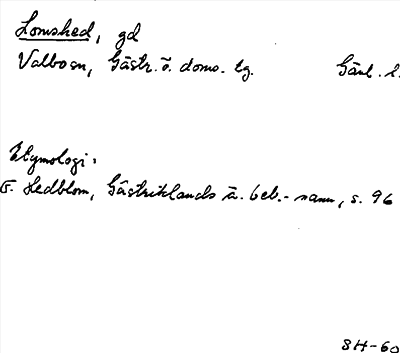 Lomshed, gd
Valbosn, Gästr. ö. doms. tg. Gävl. l.
Etymologi:
F. Hedblom, Gästriklands ä. beb.-namn, s. 96
SH-60